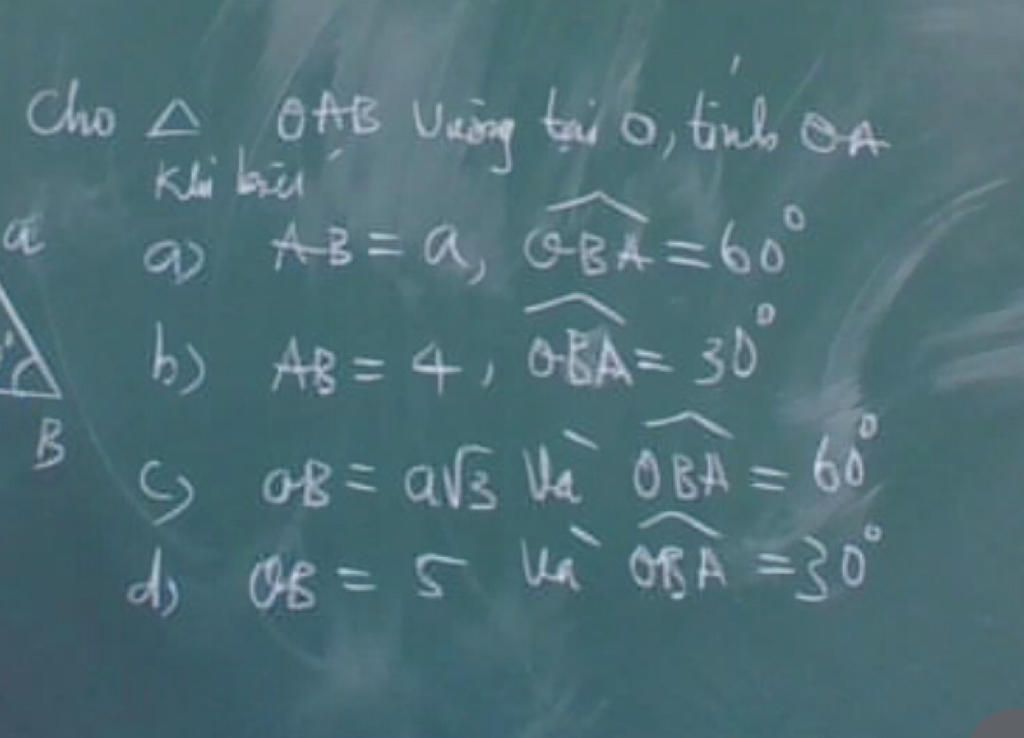 Cho △ OAB vuông tại O, tính OA
khi biết
a
a) AB = a, \widehat{OBA} = 60°
b) AB = 4, \widehat{OBA} = 30°
B
c) OB = a√3 và \widehat{OBA} = 60°
d) OB = 5 và \widehat{OBA} = 30°